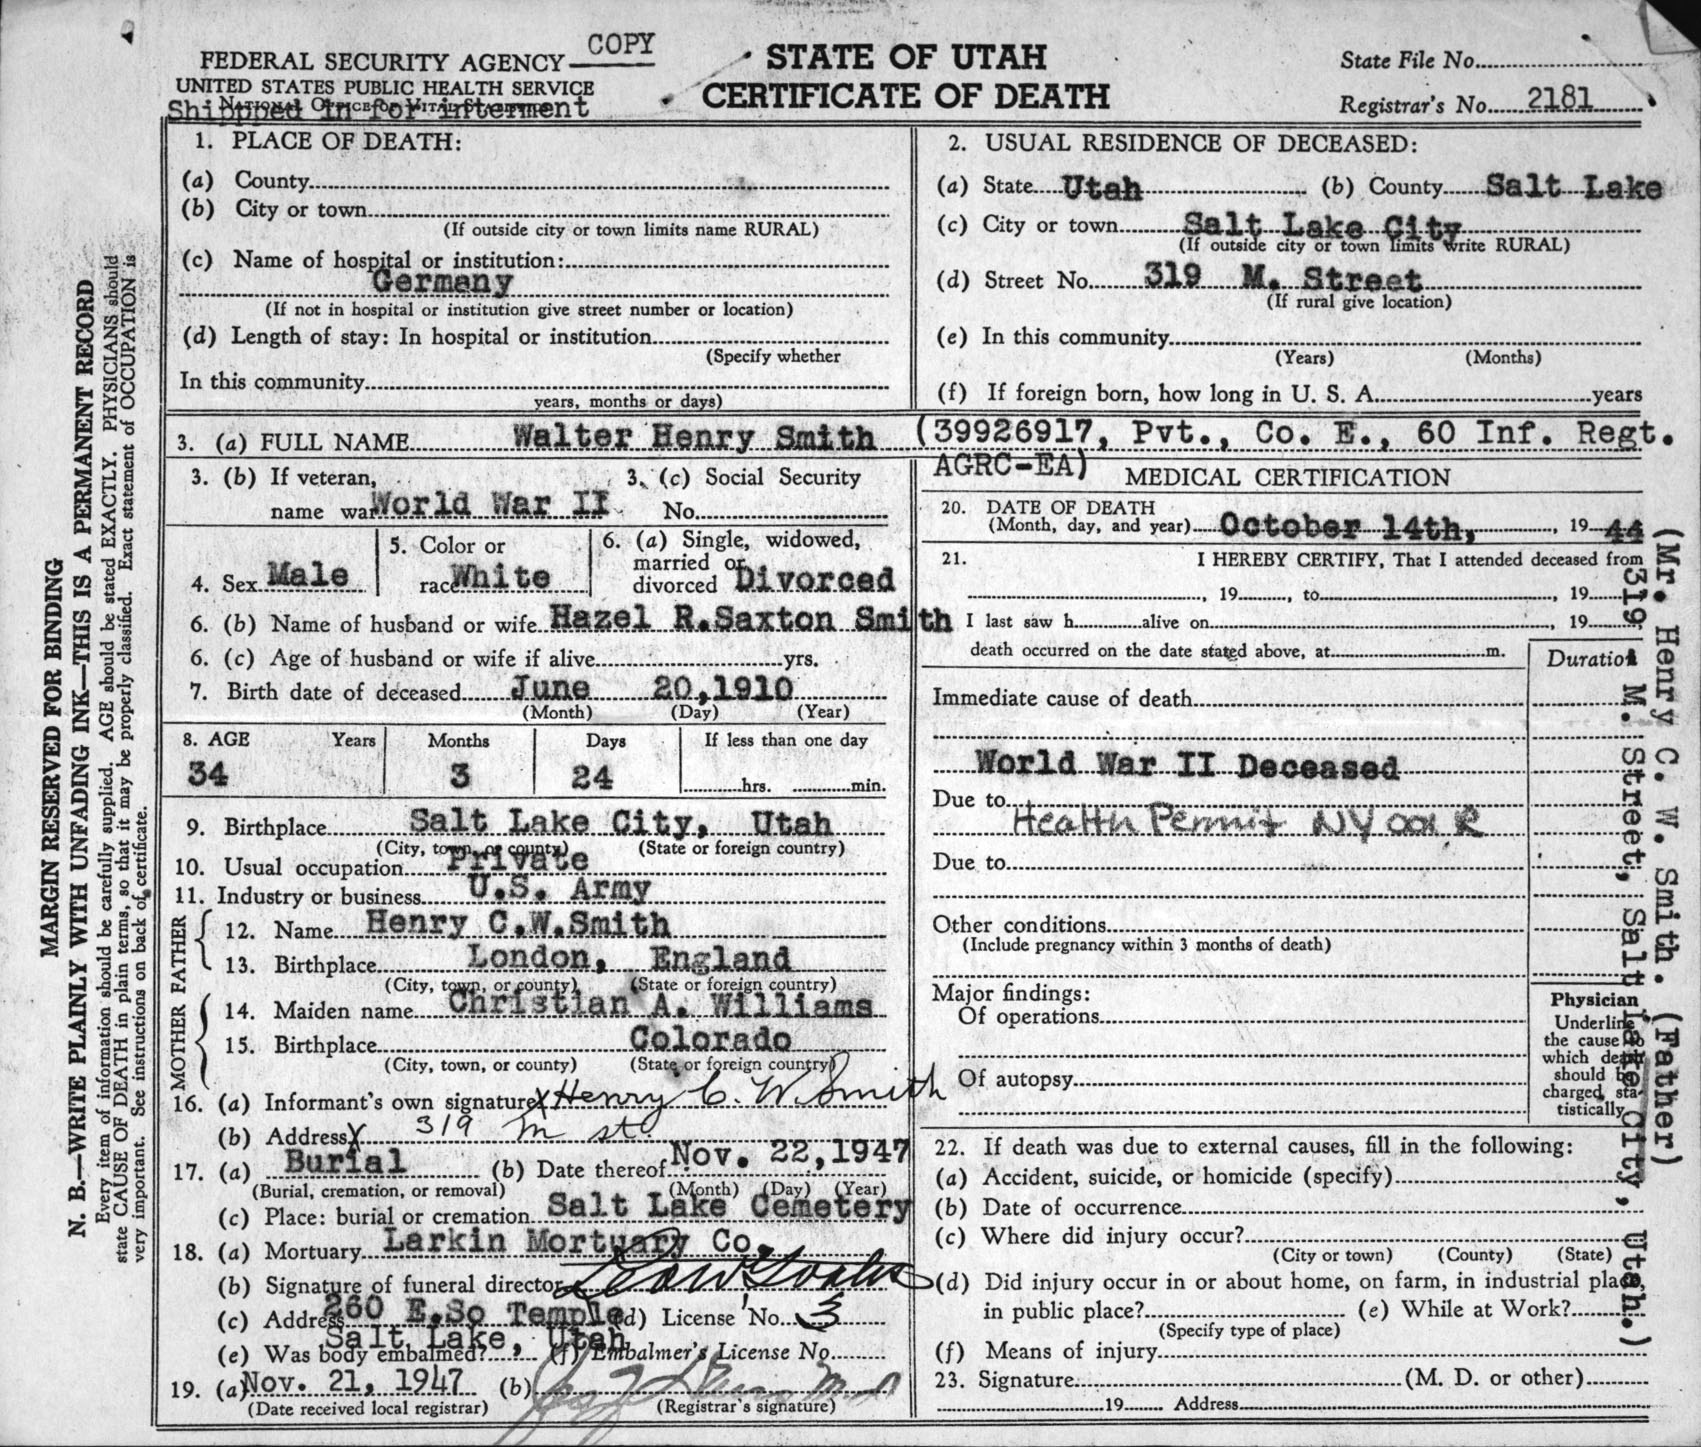 COPY
FEDERAL SECURITY AGENCY
UNITED STATES PUBLIC HEALTH SERVICE
NATIONAL OFFICE OF VITAL STATISTICS
Shippped in for interment
STATE OF UTAH
CERTIFICATE OF DEATH
State File No.
Registrar's No. 2181
1. PLACE OF DEATH:
(a) County
(b) City or town
(If outside city or town limits name RURAL)
(c) Name of hospital or institution:
Germany
(If not in hospital or institution give street number or location)
(d) Length of stay: In hospital or institution
(Specify whether
In this community
years, months or days)
2. USUAL RESIDENCE OF DECEASED:
(a) State Utah (b) County Salt Lake
(c) City or town Salt Lake City
(If outside city or town limits write RURAL)
(d) Street No. 319 M. Street
(If rural give location)
(e) In this community
(Years) (Months)
(f) If foreign born, how long in U. S. A. years
3. (a) FULL NAME Walter Henry Smith (39926917, Pvt., Co. E., 60 Inf. Regt.
AGRC-EA)
3. (b) If veteran,
name war World War II
3. (c) Social Security
No.
4. Sex Male
5. Color or
race White
6. (a) Single, widowed,
married or
divorced Divorced
6. (b) Name of husband or wife Hazel R.Saxton Smith
6. (c) Age of husband or wife if alive yrs.
7. Birth date of deceased June 20,1910
(Month) (Day) (Year)
8. AGE Years Months Days If less than one day
34 3 24 hrs. min.
9. Birthplace Salt Lake City, Utah
(City, town, or county) (State or foreign country)
10. Usual occupation Private
11. Industry or business U.S. Army
FATHER
12. Name Henry C.W.Smith
13. Birthplace London, England
(City, town, or county) (State or foreign country)
MOTHER
14. Maiden name Christian A. Williams
15. Birthplace Colorado
(City, town, or county) (State or foreign country)
16. (a) Informant's own signature X Henry C. W. Smith
(b) Address X 319 M st.
17. (a) Burial (b) Date thereof Nov. 22,1947
(Burial, cremation, or removal) (Month) (Day) (Year)
(c) Place: burial or cremation Salt Lake Cemetery
18. (a) Mortuary Larkin Mortuary Co.
(b) Signature of funeral director
(c) Address 260 E.So Temple (d) License No. 3
Salt Lake, Utah
(e) Was body embalmed? (f) Embalmer's License No.
19. (a) Nov. 21, 1947 (b)
(Date received local registrar) (Registrar's signature)
MEDICAL CERTIFICATION
20. DATE OF DEATH
(Month, day, and year) October 14th, , 19 44
21. I HEREBY CERTIFY, That I attended deceased from
, 19 , to , 19
I last saw h alive on , 19
death occurred on the date stated above, at m.
Duration
Immediate cause of death
World War II Deceased
Due to
Health Permit NY 001 R
Due to
Other conditions
(Include pregnancy within 3 months of death)
Major findings:
Of operations
Of autopsy
Physician
Underline
the cause to
which death
should be
charged sta-
tistically
22. If death was due to external causes, fill in the following:
(a) Accident, suicide, or homicide (specify)
(b) Date of occurrence
(c) Where did injury occur?
(City or town) (County) (State)
(d) Did injury occur in or about home, on farm, in industrial place,
in public place? (e) While at Work?
(Specify type of place)
(f) Means of injury
23. Signature (M. D. or other)
19 Address
MARGIN RESERVED FOR BINDING
N. B.—WRITE PLAINLY WITH UNFADING INK—THIS IS A PERMANENT RECORD
Every item of information should be carefully supplied. AGE should be stated EXACTLY. PHYSICIANS should
state CAUSE OF DEATH in plain terms, so that it may be properly classified. Exact statement of OCCUPATION is
very important. See instructions on back of certificate.
(Mr. Henry C. W. Smith. (Father)
319 M. Street, Salt Lake City, Utah.)